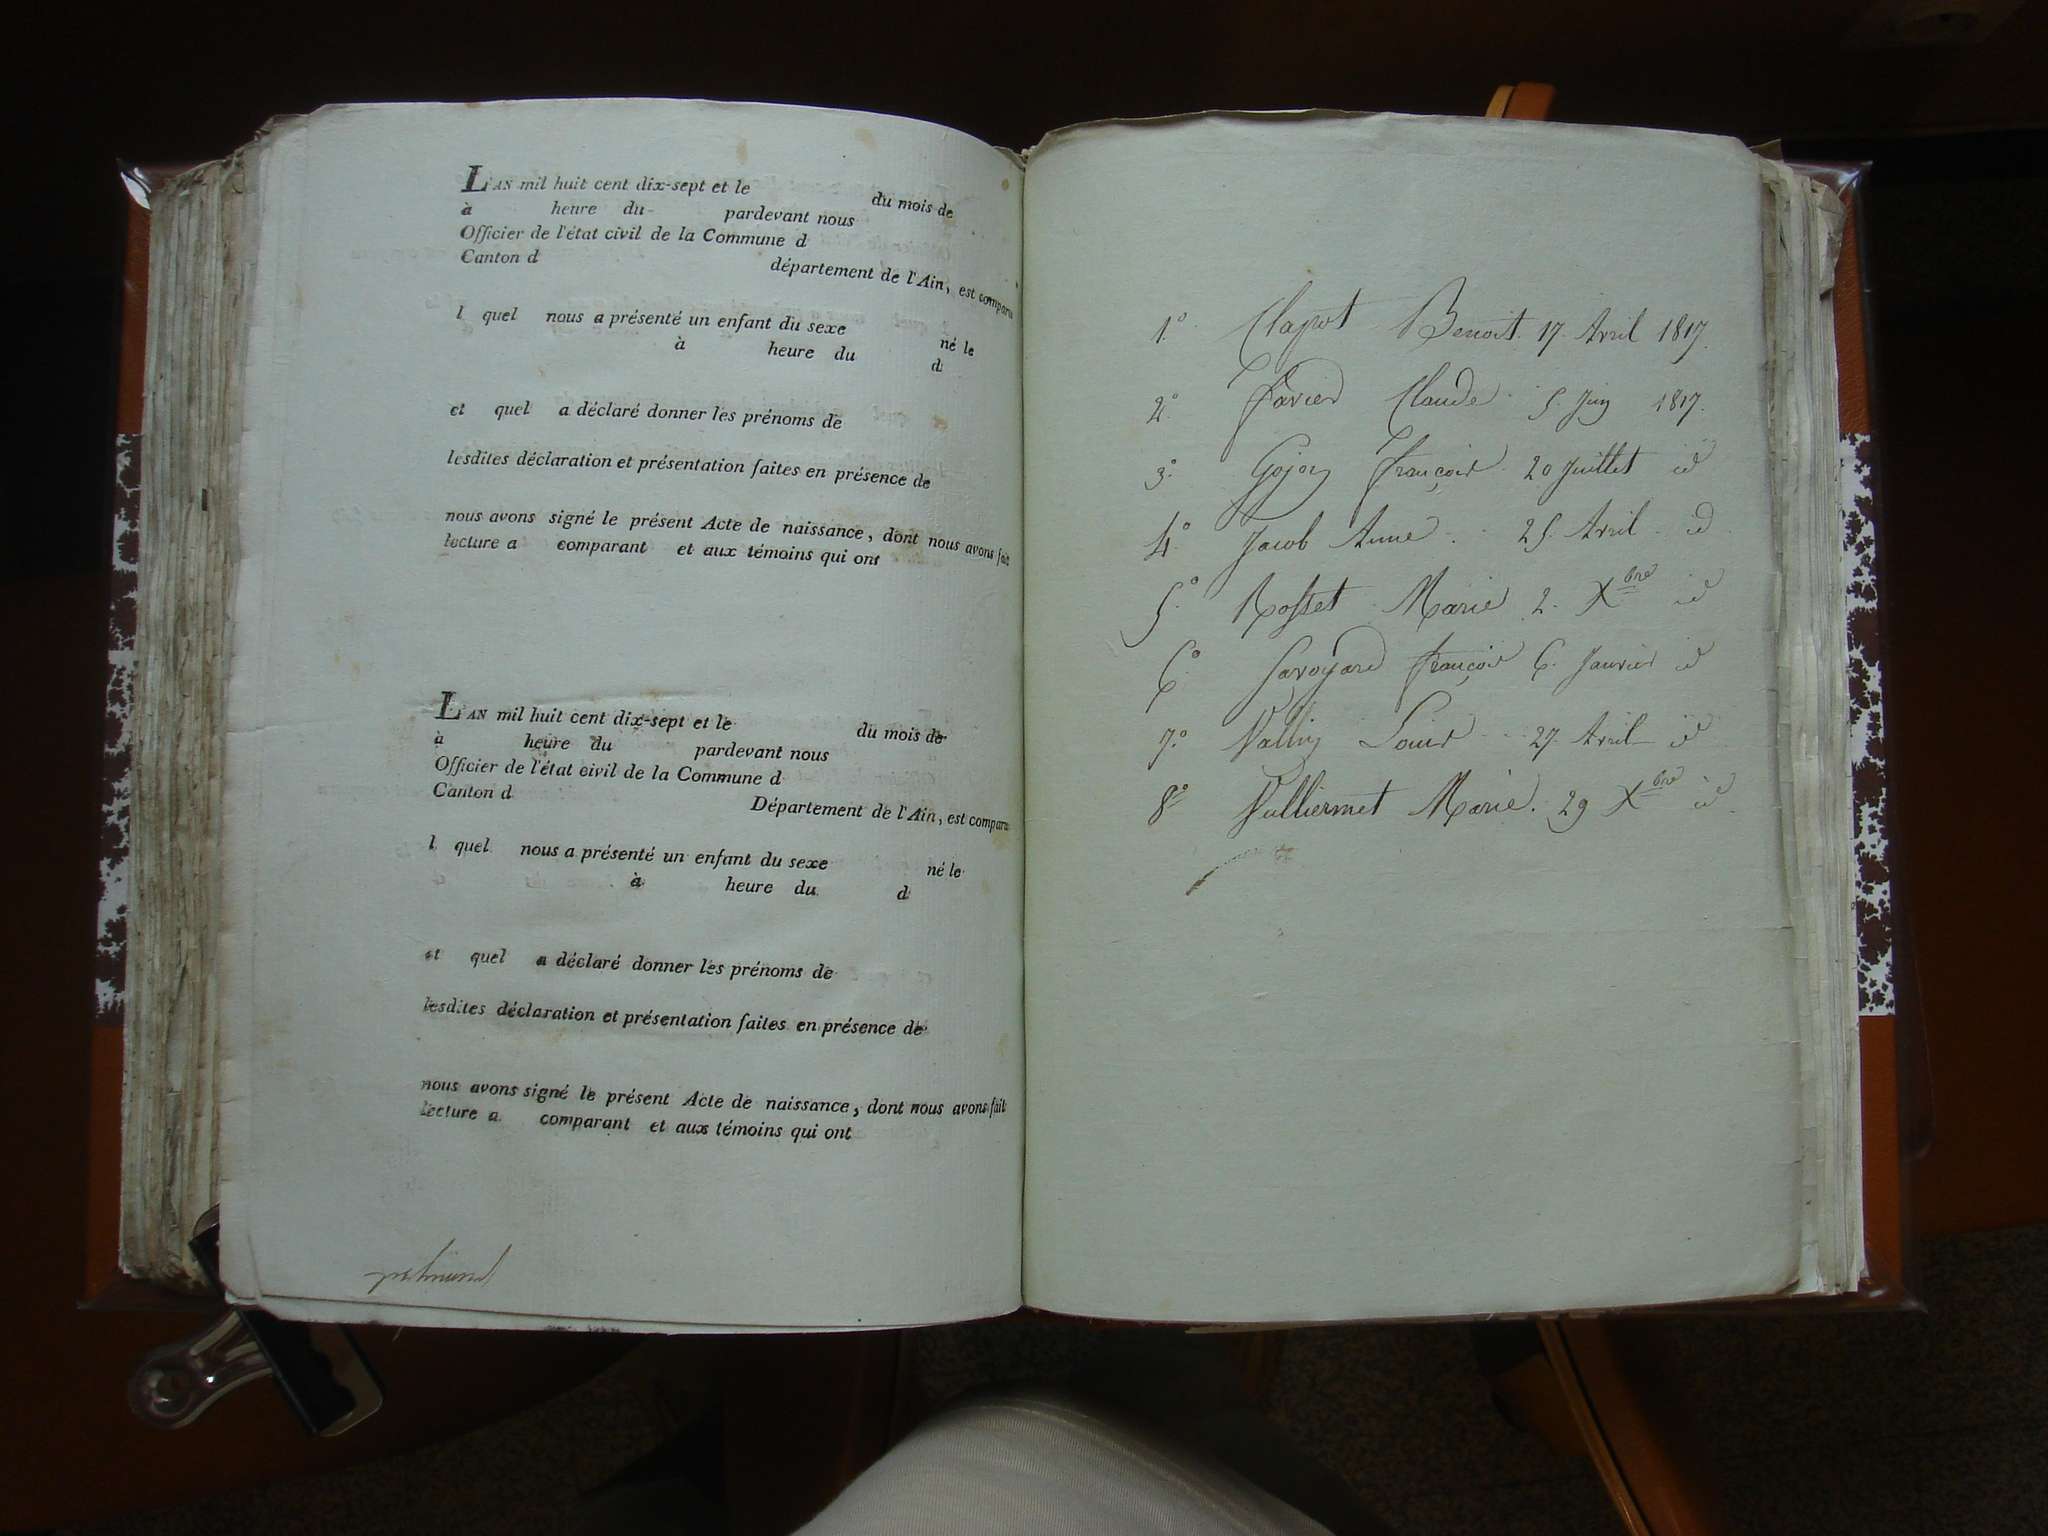 L'AN mil huit cent dix-sept et le du mois de
à heure du pardevant nous
Officier de l'état civil de la Commune d
Canton d département de l'Ain, est comparu
l quel nous a présenté un enfant du sexe né le
à heure du d
et quel a déclaré donner les prénoms de
lesdites déclaration et présentation faites en présence de
nous avons signé le présent Acte de naissance, dont nous avons fait
lecture a comparant et aux témoins qui ont
L'AN mil huit cent dix-sept et le du mois de
à heure du pardevant nous
Officier de l'état civil de la Commune d
Canton d Département de l'Ain, est comparu
l quel nous a présenté un enfant du sexe né le
à heure du d
et quel a déclaré donner les prénoms de
lesdites déclaration et présentation faites en présence de
nous avons signé le présent Acte de naissance, dont nous avons fait
lecture a comparant et aux témoins qui ont
1.° Clapot Benoit. 17. Avril 1817.
2.° Favier Claude 5. Juin 1817.
3.° Gojon François 20 Juillet id
4.° Jacob Anne 25. Avril id
5.° Rosset Marie 2. Xbre id
6.° Savoyard François 6. Janvier id
7.° Vallin Louis 27. Avril id
8.° Vulliermet Marie. 29 Xbre id